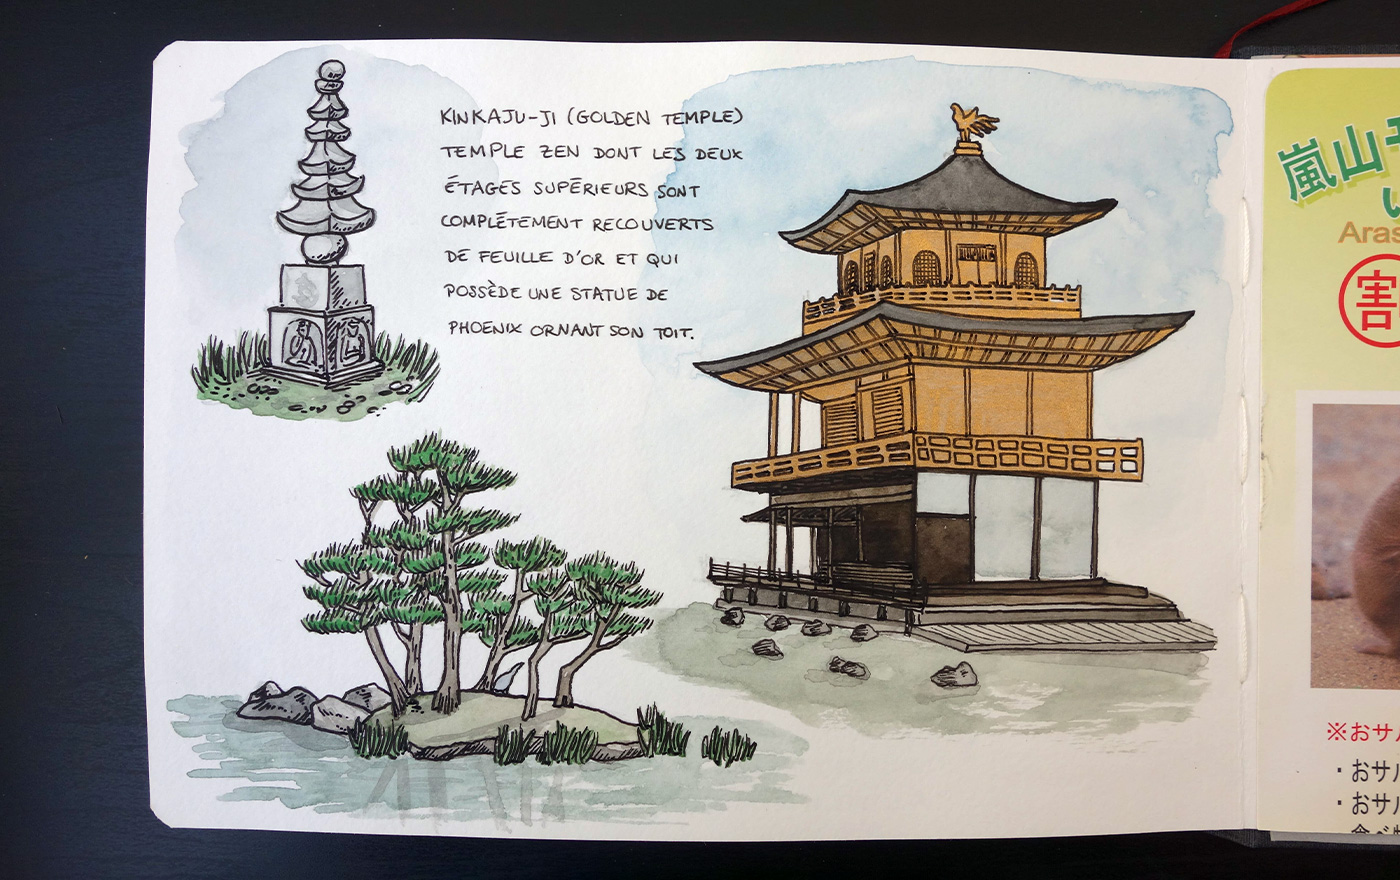 KINKAJU-JI (GOLDEN TEMPLE)
TEMPLE ZEN DONT LES DEUX
ÉTAGES SUPÉRIEURS SONT
COMPLÉTEMENT RECOUVERTS
DE FEUILLE D'OR ET QUI
POSSÈDE UNE STATUE DE
PHOENIX ORNANT SON TOIT.
嵐山モ
Aras
割
※おサル
・おサル
・おサル